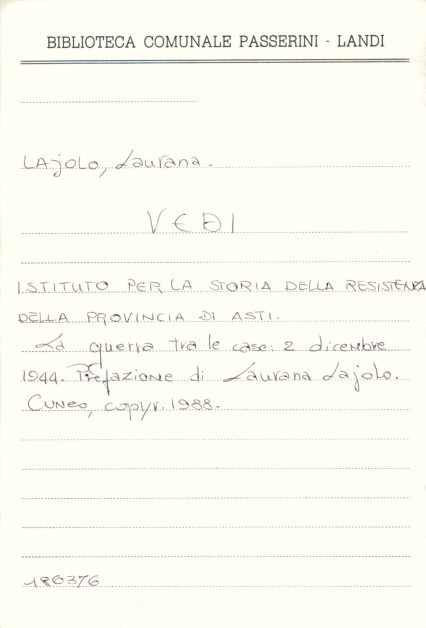 BIBLIOTECA COMUNALE PASSERINI - LANDI
LAJOLO, Laurana.
VEDI
ISTITUTO PER LA STORIA DELLA RESISTENZA
DELLA PROVINCIA DI ASTI.
La guerra tra le case: 2 dicembre
1944. Prefazione di Laurana Lajolo.
CUNEO, copyr. 1988.
186376